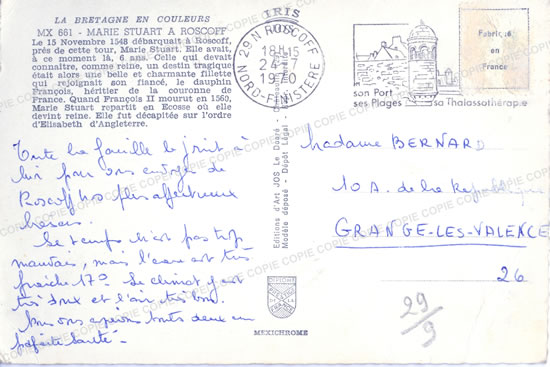 LA BRETAGNE EN COULEURS
MX 661 - MARIE STUART A ROSCOFF
Le 15 Novembre 1548 débarquait à Roscoff,
près de cette tour, Marie Stuart. Elle avait,
à ce moment là, 6 ans. Celle qui devait
connaître, comme reine, un destin tragique
était alors une belle et charmante fillette
qui rejoignait son fiancé, le dauphin
François, héritier de la couronne de
France. Quand François II mourut en 1560,
Marie Stuart repartit en Ecosse où elle
devint reine. Elle fut décapitée sur l'ordre
d'Elisabeth d'Angleterre.
Toute la famille se joint à
moi pour vous envoyer de
Roscoff nos plus affectueux
baisers.
Le temps n'est pas trop
mauvais, mais l'eau est très
fraîche 17°. Le climat y est
très doux et l'air très bon.
Nous vous espérons toutes deux en
parfaite santé.
IRIS
29 N ROSCOFF
18H15
24-7
1970
NORD-FINISTERE
son Port
ses Plages
sa Thalassothérapie
Fabriqué
en
France
Editions d'Art JOS Le Doaré
Modèle déposé - Dépôt Légal
MEXICHROME
Madame BERNARD
10 A. de la République
GRANGE-LES-VALENCE
26
29/9
COPIE COPIE COPIE COPIE